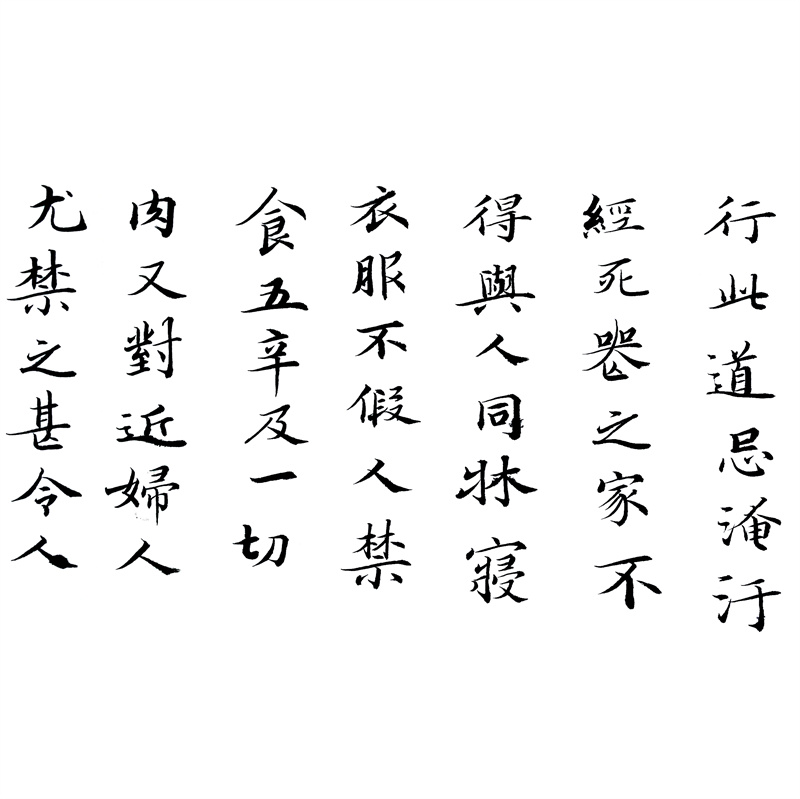 行此道忌淹汙
經死喪之家不
得與人同牀寢
衣服不假人禁
食五辛及一切
肉又對近婦人
尤禁之甚令人